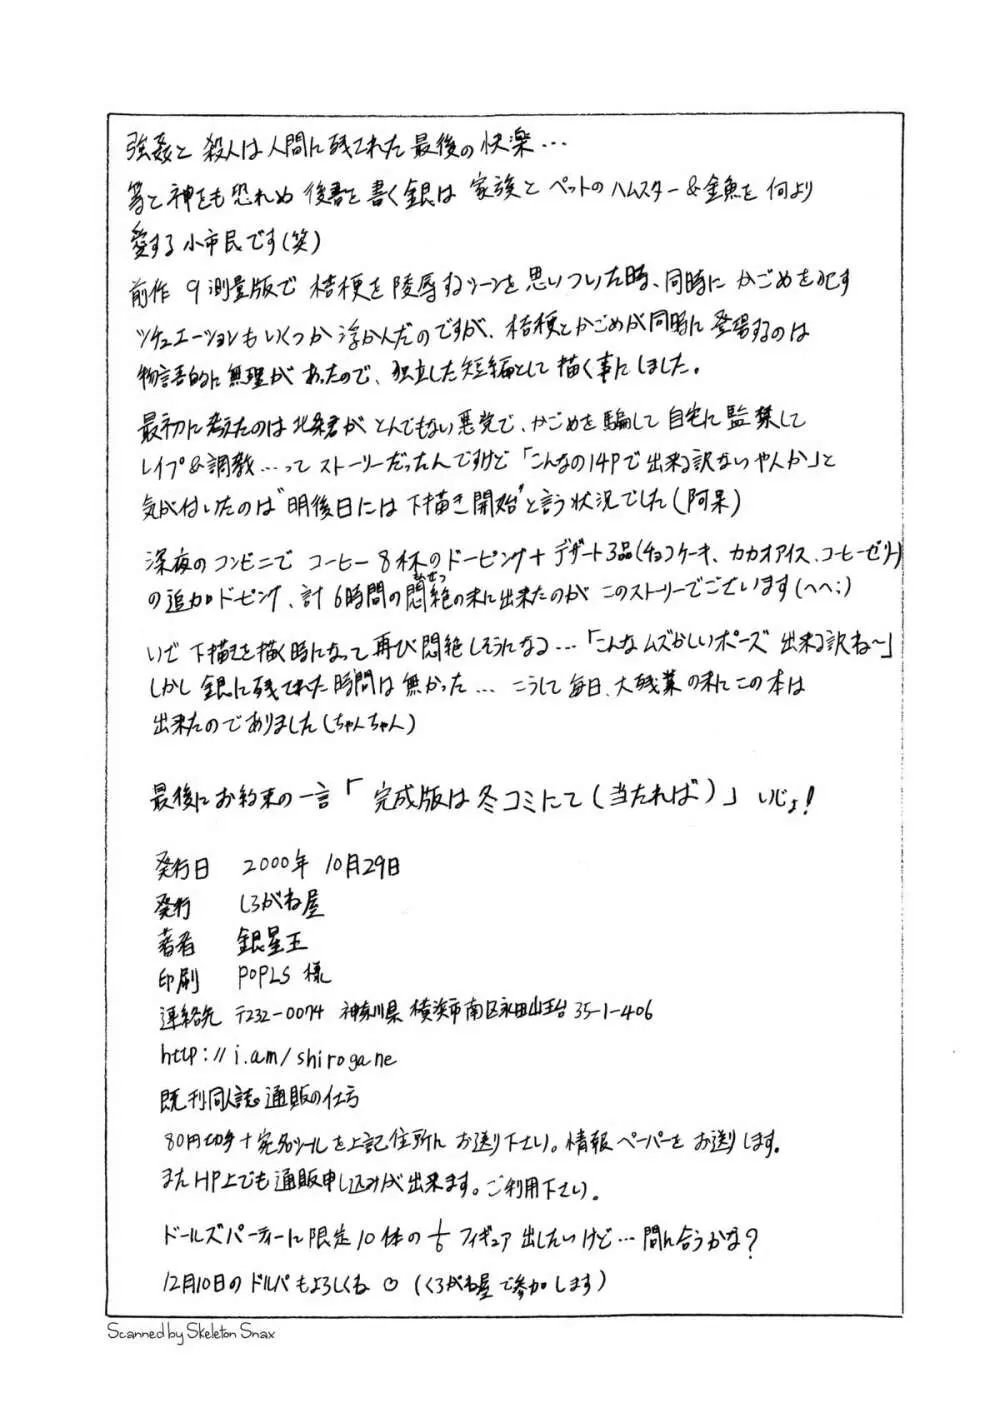 強姦と殺人は人間に残された最後の快楽…
等と神をも恐れぬ後書を書く銀は 家族とペットのハムスター&金魚を何より
愛する小市民です(笑)
前作 9測量版で 桔梗を陵辱するシーンを思いついた時、同時に かごめを犯す
シチュエーションもいくつか浮かんだのですが、桔梗とかごめが同時に登場するのは
物語的に無理があったので、独立した短編として描く事にしました。
最初に考えたのは北条君がとんでもない悪党で、かごめを騙して自宅に監禁して
レイプ&調教…ってストーリーだったんですけど「こんなの14Pで出来る訳ないやんか」と
気が付いたのは"明後日には下描き開始"と言う状況でした(阿呆)
深夜のコンビニで コーヒー8杯のドーピング+デザート3品(チョコケーキ、カカオアイス、コーヒーゼリー)
の追加ドーピング、計6時間の悶絶の末に出来たのが このストーリーでございます(へへ;)
いざ下描きを描く時になって再び悶絶しそうになる…「こんなムズかしいポーズ 出来る訳ね〜」
しかし銀に残された時間は無かった… こうして毎日、大残業の末にこの本は
出来たのでありました(ちゃんちゃん)
最後にお約束の一言「完成版は冬コミにて(当たれば)」いじょ!
発行日 2000年 10月29日
発行 しろがね屋
著者 銀星王
印刷 POPLS 様
連絡先 〒232-0074 神奈川県横浜市南区永田山王台35-1-406
http://i.am/shirogane
既刊同人誌通販の仕方
80円切手+宛名シールを上記住所にお送り下さい。情報ペーパーをお送りします。
またHP上でも通販申し込みが出来ます。ご利用下さい。
ドールズパーティーに限定10体の1/6フィギュア出したいけど…間に合うかな?
12月10日のドルパもよろしくね♡ (くろがね屋で参加します)
Scanned by Skeleton Snax